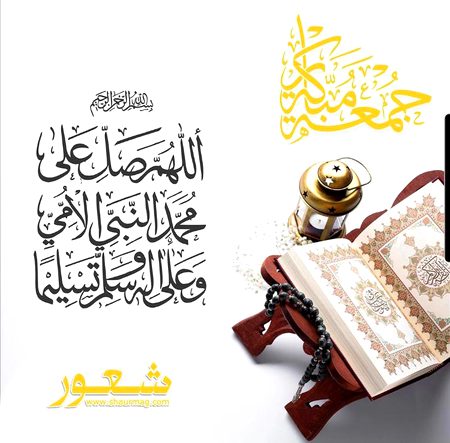 جمعة مباركة
بسم الله الرحمن الرحيم
اللهم صل على
محمد النبي الأمي
وعلى آله وسلم تسليما
شعور
www.shaurmag.com